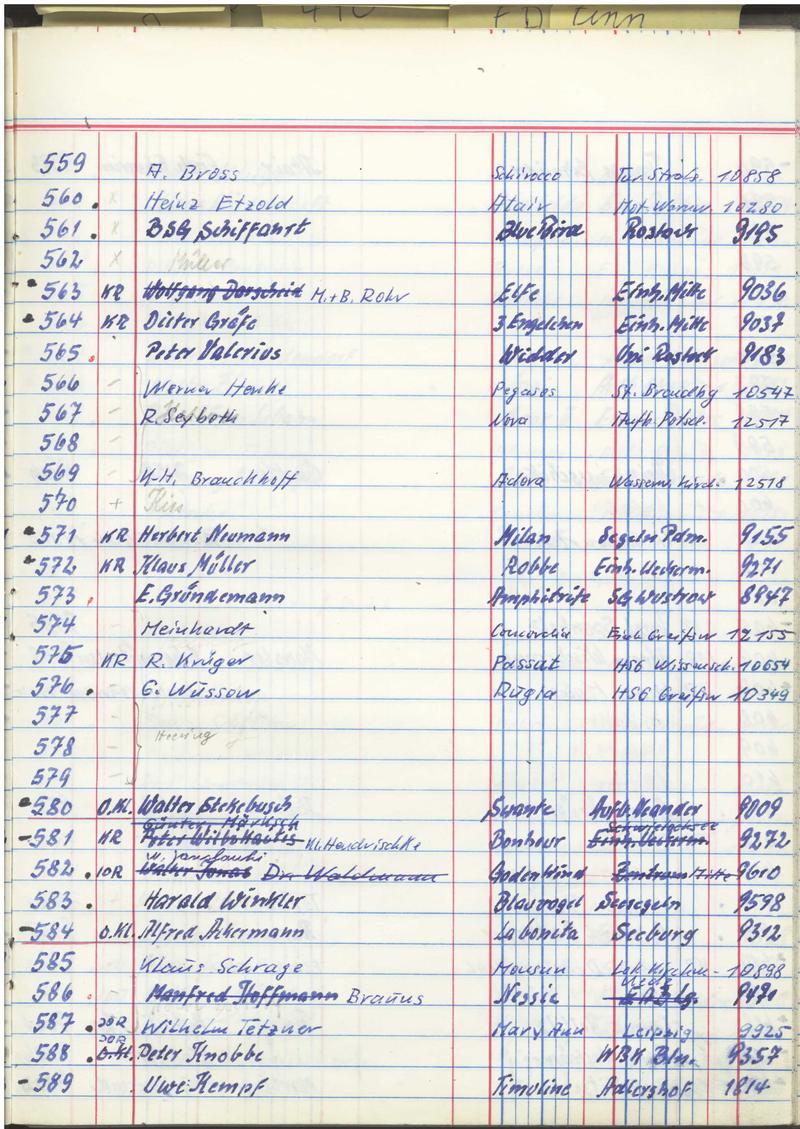 559 A. Bross Schirocco Tur. Strals. 10858
560 . x Heinz Etzold Atair Mot. Warnow 10280
561 . x BSG Schiffahrt Blue Bird Rostock 9195
562 x Müller
563 KR Wolfgang Dorscheid M.+B. Rohr Elfe Einh. Mitte 9036
564 KR Dieter Gräfe 3 Engelchen Einh. Mitte 9037
565 . Peter Valerius Widder Uni Rostock 9183
566 - Werner Henke Pegasos St. Brandbg 10547
567 - R. Seyboth Nova Aufb. Potsd. 12517
568 -
569 - K-H. Brauckhoff Adora 12518
570 +
571 KR Herbert Neumann Milan Segeln Pdm. 9155
572 KR Klaus Müller Robbe Einh. Ueckerm. 9271
573 . E. Gründemann Amphitrite SG Wustrow 8947
574 Meinhardt Concordia Einh Greifsw 12155
575 KR R. Krüger Passat HSG Wissensch. 10654
576 . G. Wussow Rugia HSG Greifsw 10349
577 -
578 - Hennig
579 -
580 O.Kl. Walter Stekebusch Swante Aufb. Neander 9009
Günter Märksch Schwielochsee
581 KR Kl. Hendrischke Bonheur Einh. Ueckerm. 9272
582 . 10R Walter Jonas Dr. Waldmann Godenwind Zentrum Mitte 9610
583 . Harald Winkler Blauvogel Seesegeln 9598
584 O.Kl. Alfred Ackermann La bonita Seeburg 9312
585 Klaus Schrage Monsun Lok Kirchm. 10898
586 . Manfred Hoffmann Brauns Nessie 9470
587 . 20R Wilhelm Tetzner Mary Ann Leipzig 9925
20R
588 . O.Kl. Peter Knobbe WBK Bln. 9357
589 Uwe Kempf Timoline Adlershof 1814